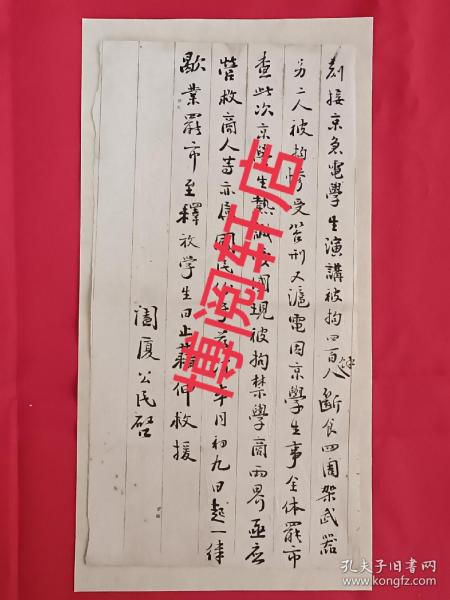 刻接京急電學生演講被拘四百餘人斷食四圍架武器
另二人被拘慘受笞刑又滬電因京學生事全体罷市
查此次京學生熱誠國現被拘禁學商兩界亟應
營救商人等亦屬國民月初九日起一律
歇業罷市至釋放学生日止藉伸救援
闔廈公民啓
博阅轩店
孔夫子旧书网
kongfz.com